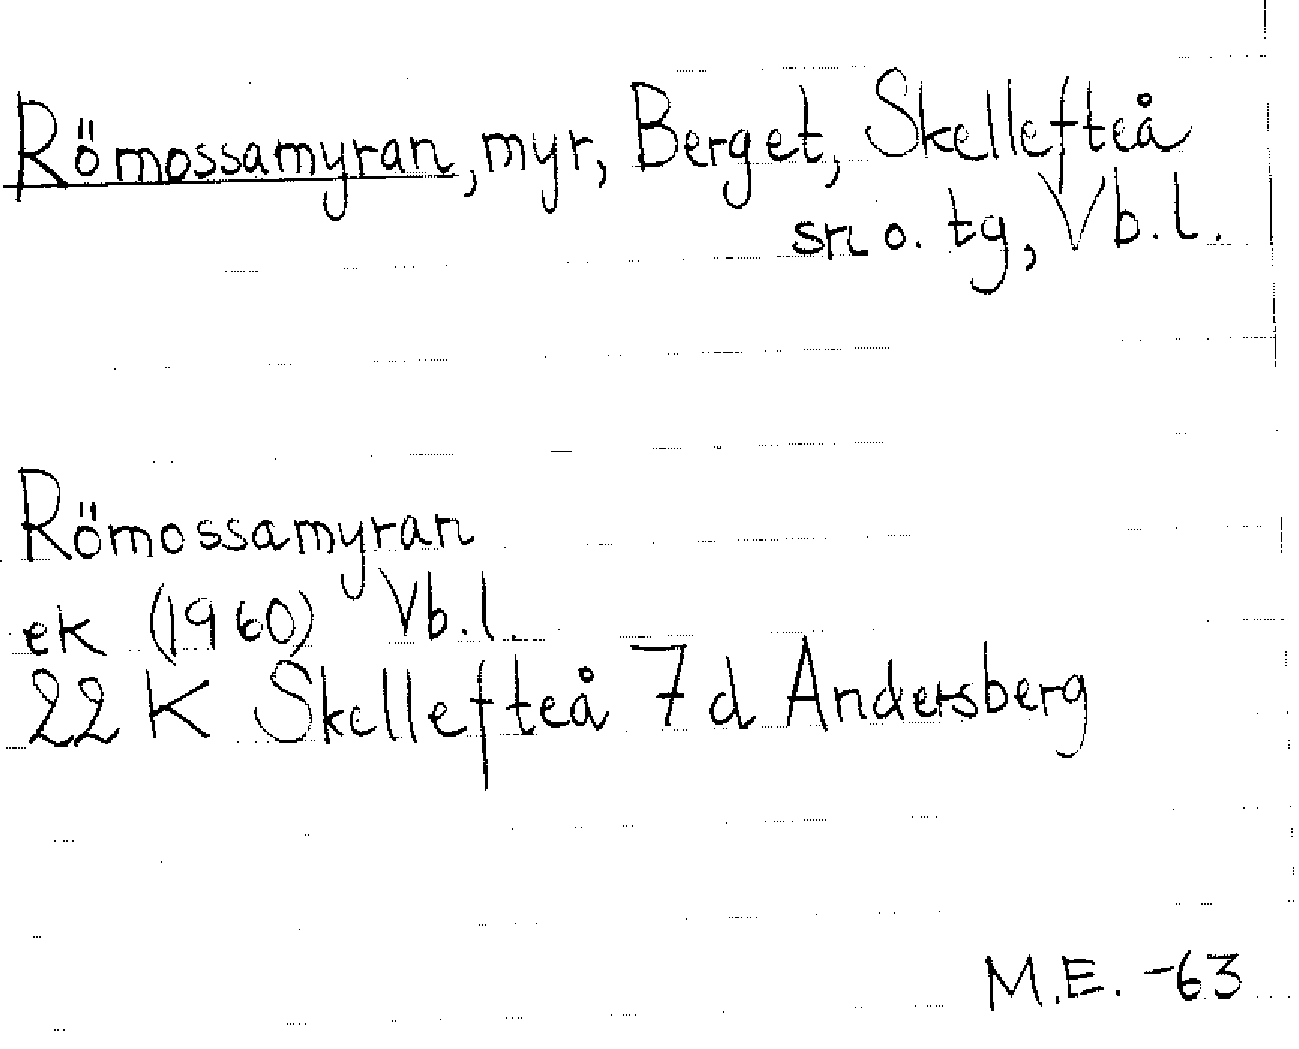 Römossamyran, myr, Berget, Skellefteå
sn o. tg, Vb.l.
Römossamyran
ek (1960) Vb.l.
22 K Skellefteå 7d Andersberg
M.E. -63